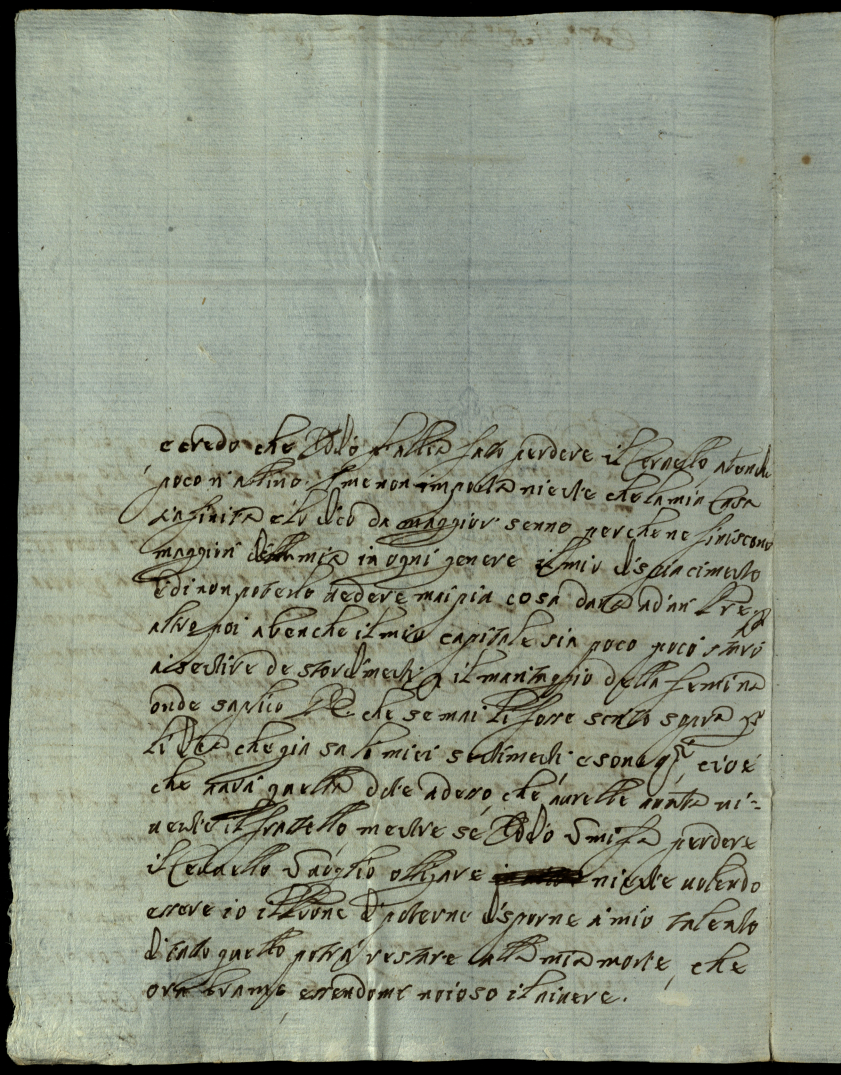 e credo che Iddio m'abbia fatto perdere il Cervello
poco n'abbino. A me non importa niente che la mia Casa
sia finita e lo dico da maggior senno perche ne finiscono
maggiori della mia in ogni genere il mio dispiacimento
è di non poterlo vedere mai più cosa data ad un Pre
altro poi abenche il mio capitale sia poco poco starò
a sentire de stordimenti il mantaggio della femina
onde suplico che se mai li fosse sento
li dica che già sa li miei sentimenti e sono cioè
che havrà quella dote adesso che aurebbe avuta vi-
vente il fratello mentre se Iddio mi fa perdere
il Cervello voglio obligare niente volendo
essere io il Prone di poterne disporne à mio talento
di tutto quello potrà restare alla mia morte, che
ora bramo essendomi noioso il vivere.